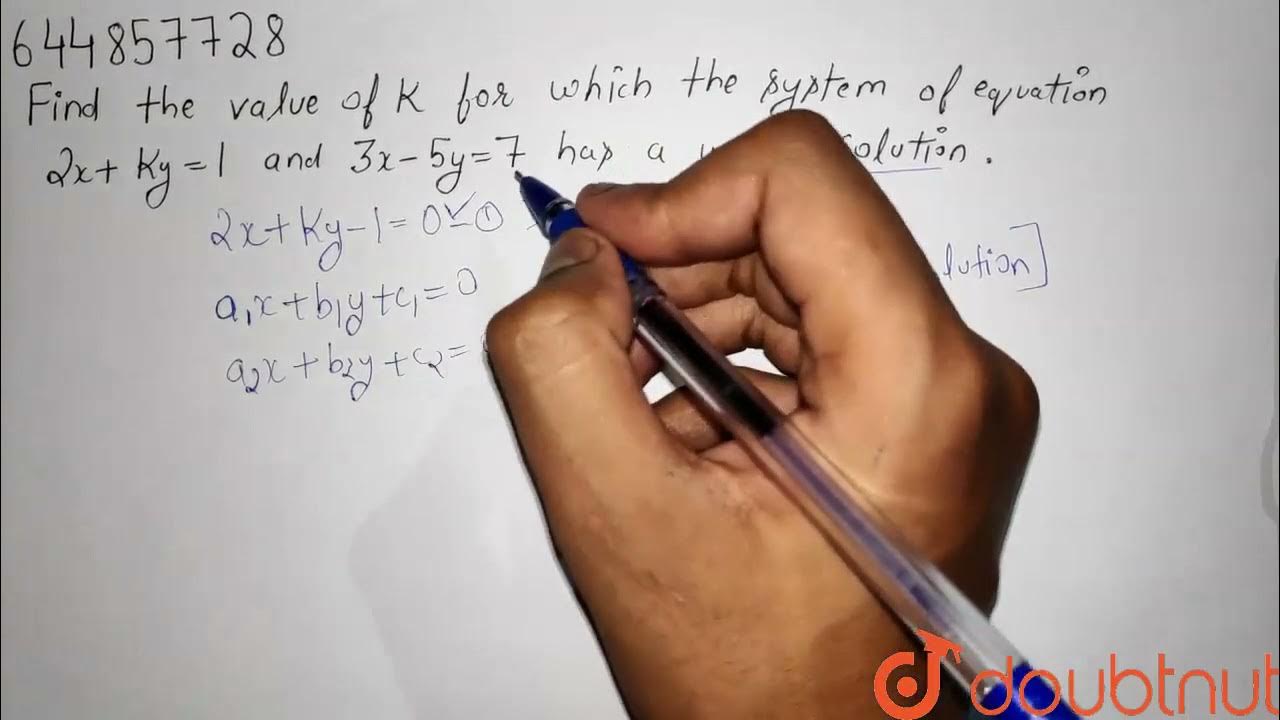 644857728
Find the value of K for which the system of equation
2x + Ky = 1 and 3x - 5y = 7 has a solution.
2x + Ky - 1 = 0 ✓ - ①
lution]
a₁x + b₁y + c₁ = 0
a₂x + b₂y + c₂ =
doubtnut